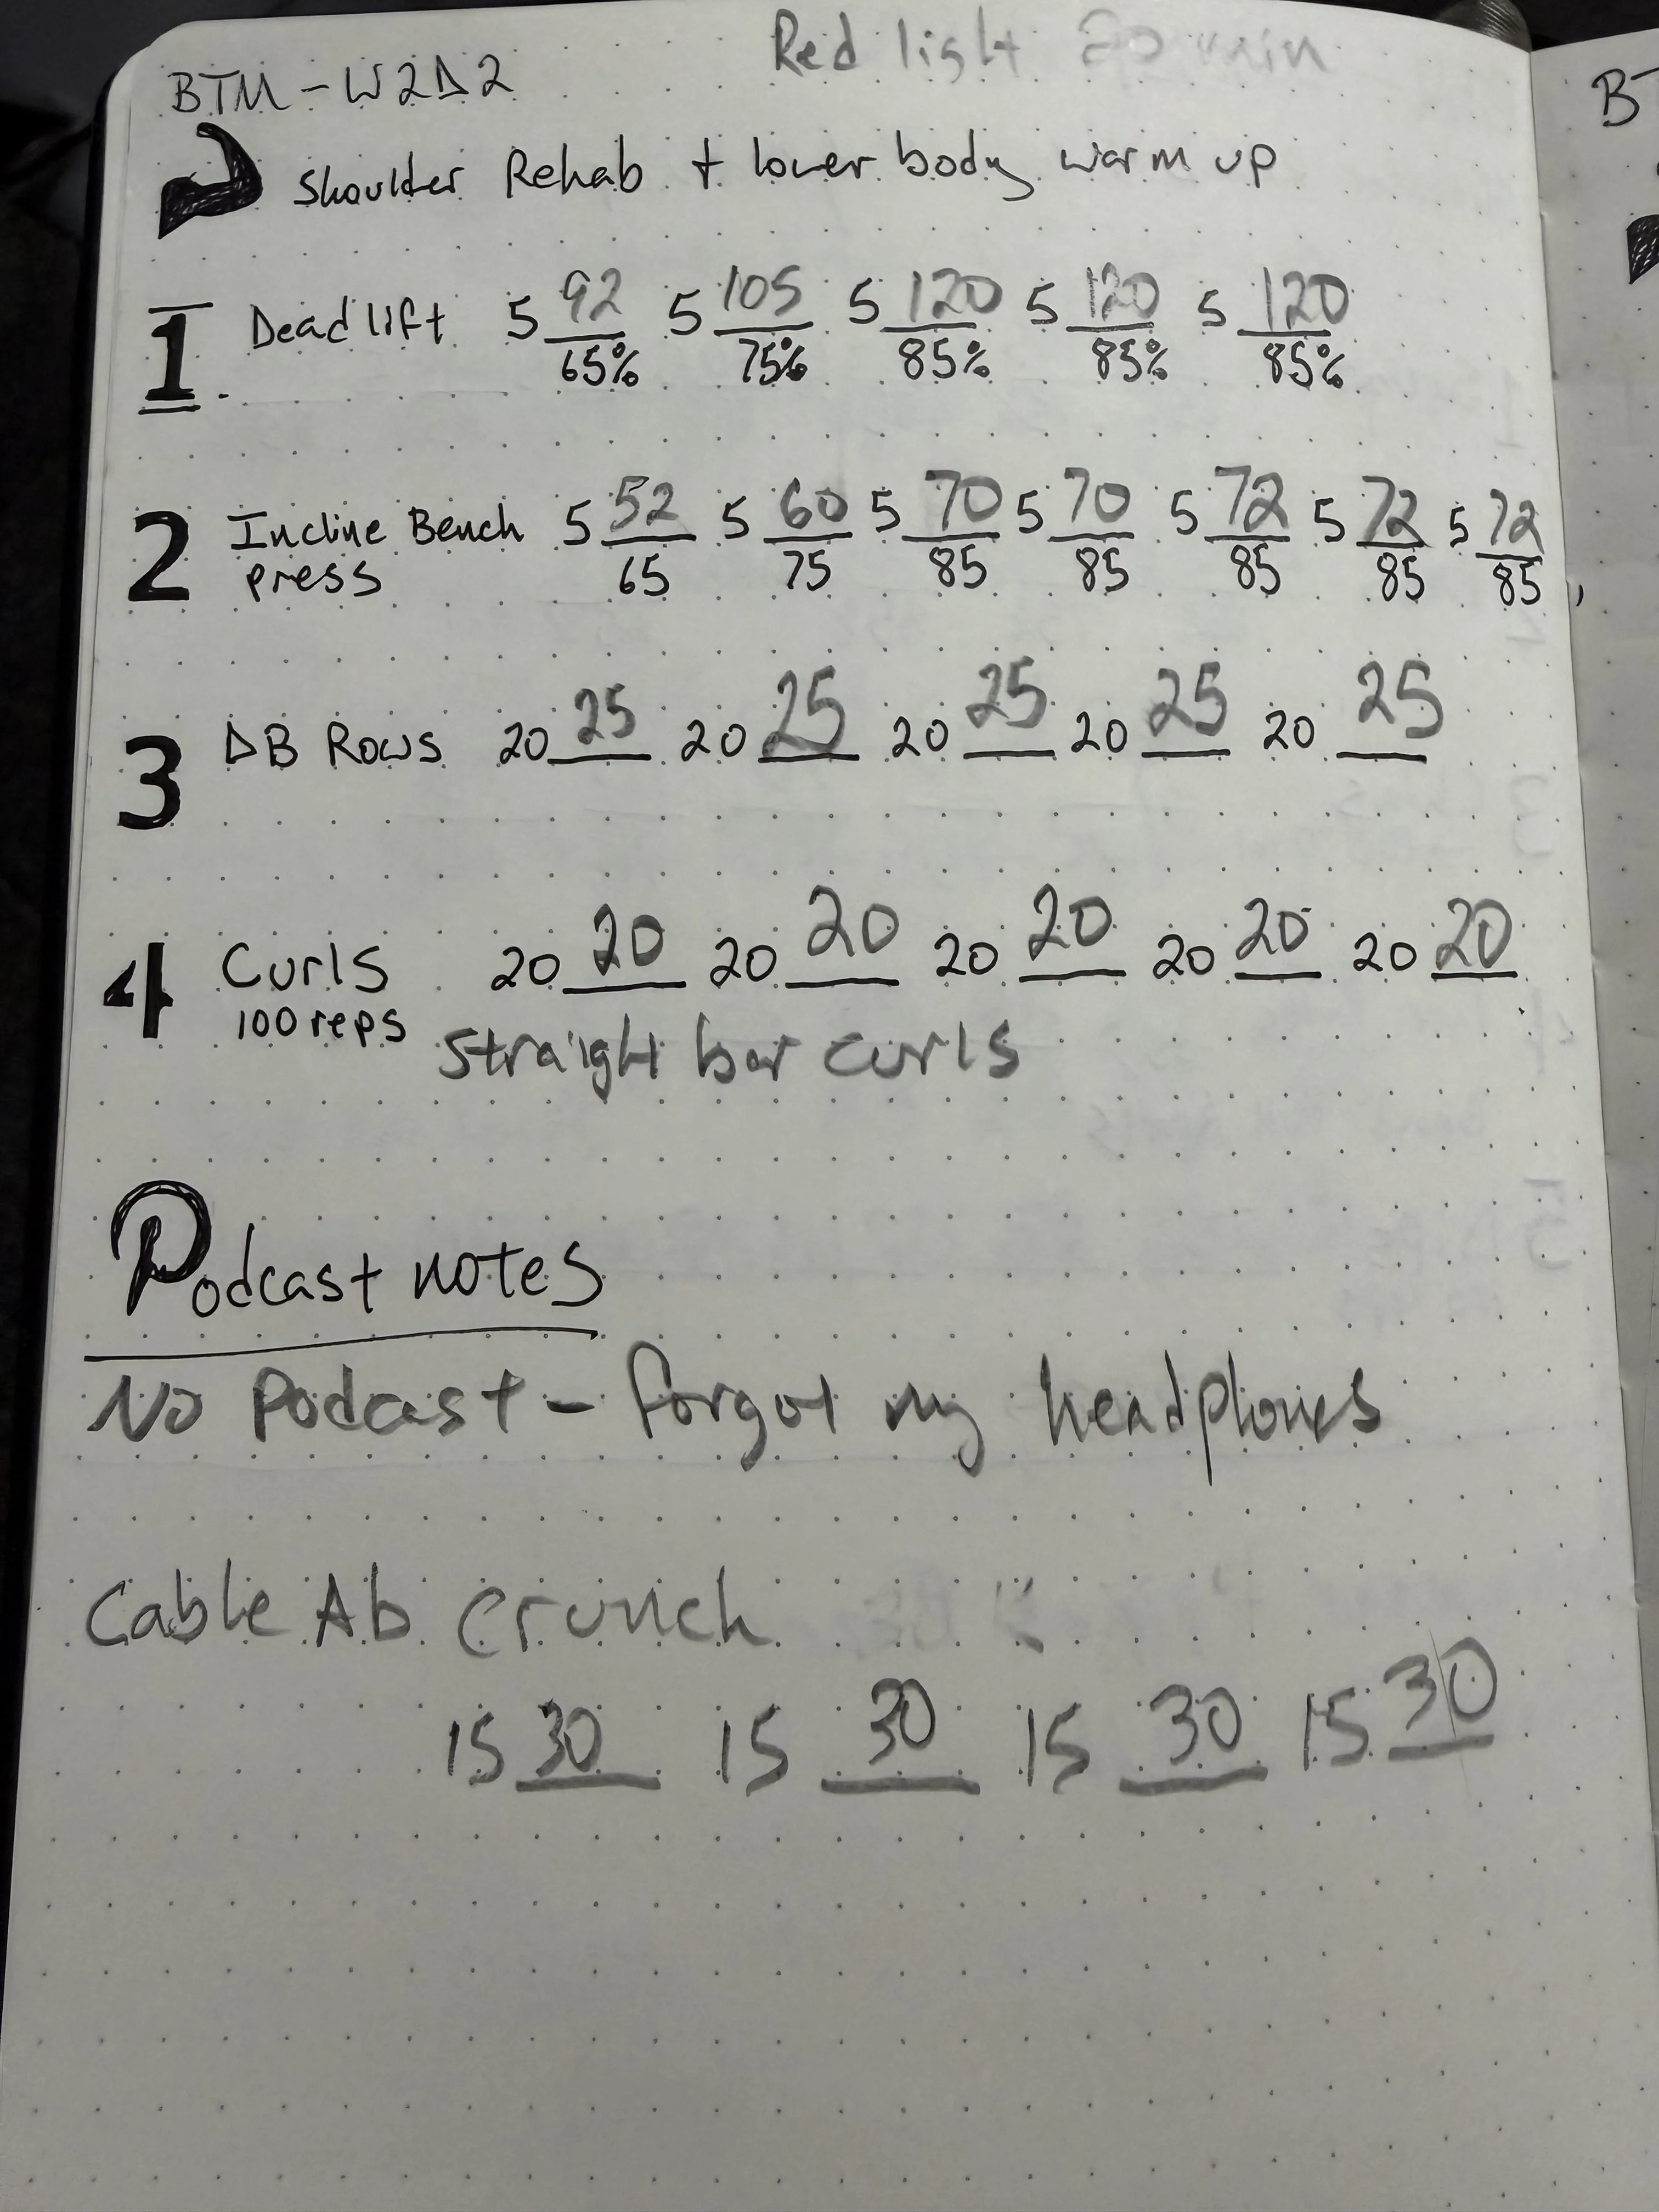 Red light 20 min
BTM - W2D2
Shoulder Rehab + lower body warm up
1 Deadlift 5 92/65% 5 105/75% 5 120/85% 5 120/85% 5 120/85%
2 Incline Bench press 5 52/65 5 60/75 5 70/85 5 70/85 5 72/85 5 72/85 5 72/85
3 DB Rows 20 25 20 25 20 25 20 25 20 25
4 Curls 20 20 20 20 20 20 20 20 20 20
100 reps
straight bar curls
Podcast notes
No Podcast - forgot my headphones
Cable Ab crunch
15 30 15 30 15 30 15 30
B